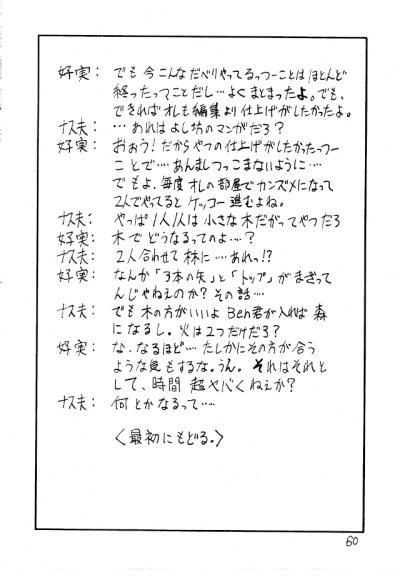 好実： でも今こんなだべりやってるっつーことはほとんど
終ったってことだし…よくまとまったよ。でも、
できればオレも編集より仕上げがしたかったよ。
ナス夫： …あれはよし坊のマンガだろ？
好実： おおう！だからやつの仕上げがしたかったっつー
ことで……あんましつっこまないように…
でもよ、毎度オレの部屋でカンズメになって
2人でやてると ケッコー進むよね。
ナス夫： やっぱ1人1人は小さな木だがってやつだろ
好実： 木でどうなるってのよ…？
ナス夫： 2人合わせて林に…あれっ!?
好実： なんか「3本の矢」と「トップ」がまざって
んじゃねえのか？その話…
ナス夫： でも木の方がいいよ Ben君が入れば 森
になるし。火は2つだけだろ？
好実： な、なるほど…たしかにその方が合う
ような気もするな。うん。それはそれと
して、時間 超ヤバくねぇか？
ナス夫： 何とかなるって……
〈最初にもどる。〉
60